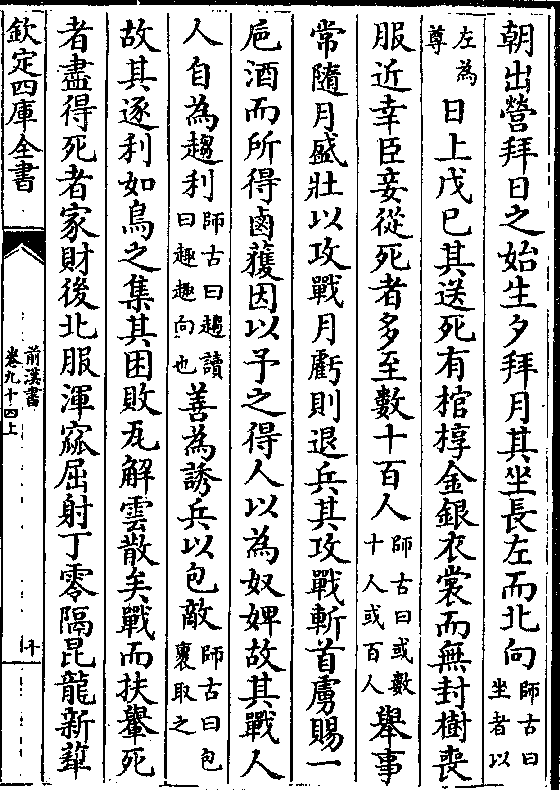 朝出營拜日之始生夕拜月其坐長左而北向師古曰坐者以
左為尊日上戊巳其送死有棺椁金銀衣裳而無封樹喪
服近幸臣妾從死者多至數十百人師古曰或數十人或百人舉事
常隨月盛壯以攻戰月虧則退兵其攻戰斬首虜賜一
巵酒而所得鹵獲因以予之得人以為奴婢故其戰人
人自為趨利師古曰趨讀曰趣趣向也善為誘兵以包敵師古曰包裹取之
故其逐利如鳥之集其困敗瓦解雲散矣戰而扶轝死
者盡得死者家財後北服渾窳屈射丁零隔昆龍新犂
欽定四庫全書
前漢書
卷九十四上
十